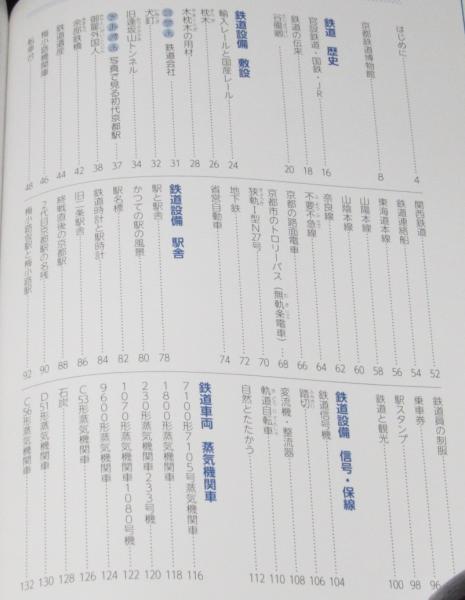 はじめに 4
京都鉄道博物館 8
鉄道 歴史
官設鉄道・国鉄・JR 16
鉄道の伝来 18
20
鉄道設備 敷設
輸入レールと国産レール 24
枕木 26
木枕木の用材 28
鉄道会社 31
犬釘 32
旧逢坂山トンネル 34
写真で見る初代京都駅 37
御雇外国人 38
余部鉄橋 42
鉄道遺産 44
梅小路機関車 46
転車台 48
関西鉄道 52
鉄道連絡船 54
東海道本線 56
山陽本線 58
山陰本線 60
奈良線 62
不要不急線 64
京都の路面電車 66
京都市のトロリーバス(無軌条電車) 68
狭軌Ⅰ型N27号 70
地下鉄 72
省営自動車 74
鉄道設備 駅舎
駅と駅舎 78
かつての駅の風景 80
駅名標 82
鉄道時計と駅時計 84
旧二条駅舎 86
終戦直後の京都駅 88
2代目京都駅の名残 90
梅小路仮駅と梅小路駅 92
鉄道員の制服 96
乗車券 98
駅スタンプ 100
鉄道と観光
鉄道設備 信号・保線
鉄道信号機 104
踏切 106
変流機・整流器 108
軌道自転車 110
自然とたたかう 112
鉄道車両 蒸気機関車
7100形7105号蒸気機関車 116
1800形蒸気機関車 118
230形蒸気機関車233号機 120
1070形蒸気機関車1080号機 122
9600形蒸気機関車 124
C53形蒸気機関車 126
石炭 128
D51形蒸気機関車 130
C56形蒸気機関車 132